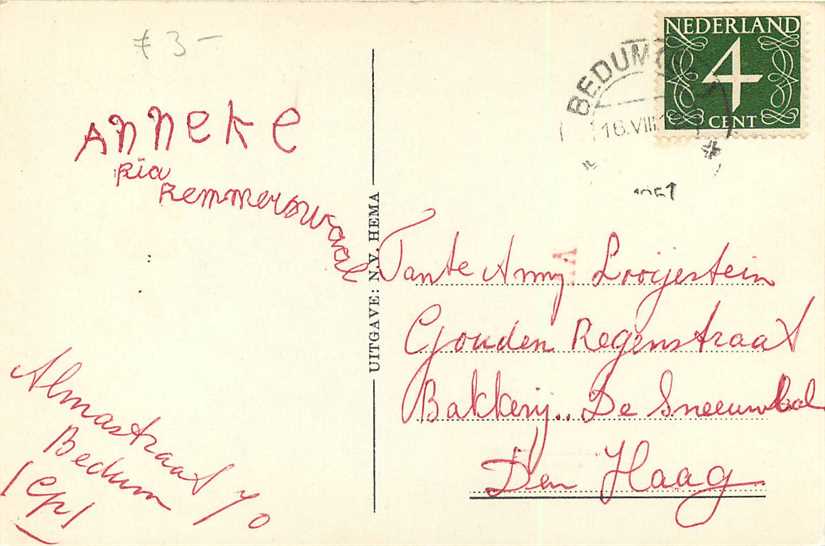 £ 3-
NEDERLAND
4
CENT
BEDUM
16.VIII.1
1951
ANNEKE
Ria
Remmerswaal
UITGAVE: N.V. HEMA
Tante Anny Looijestein
Gouden Regenstraat
Bakkerij.. De Sneeuwbal
Den Haag
Almastraat 70
Bedum
(Gr)